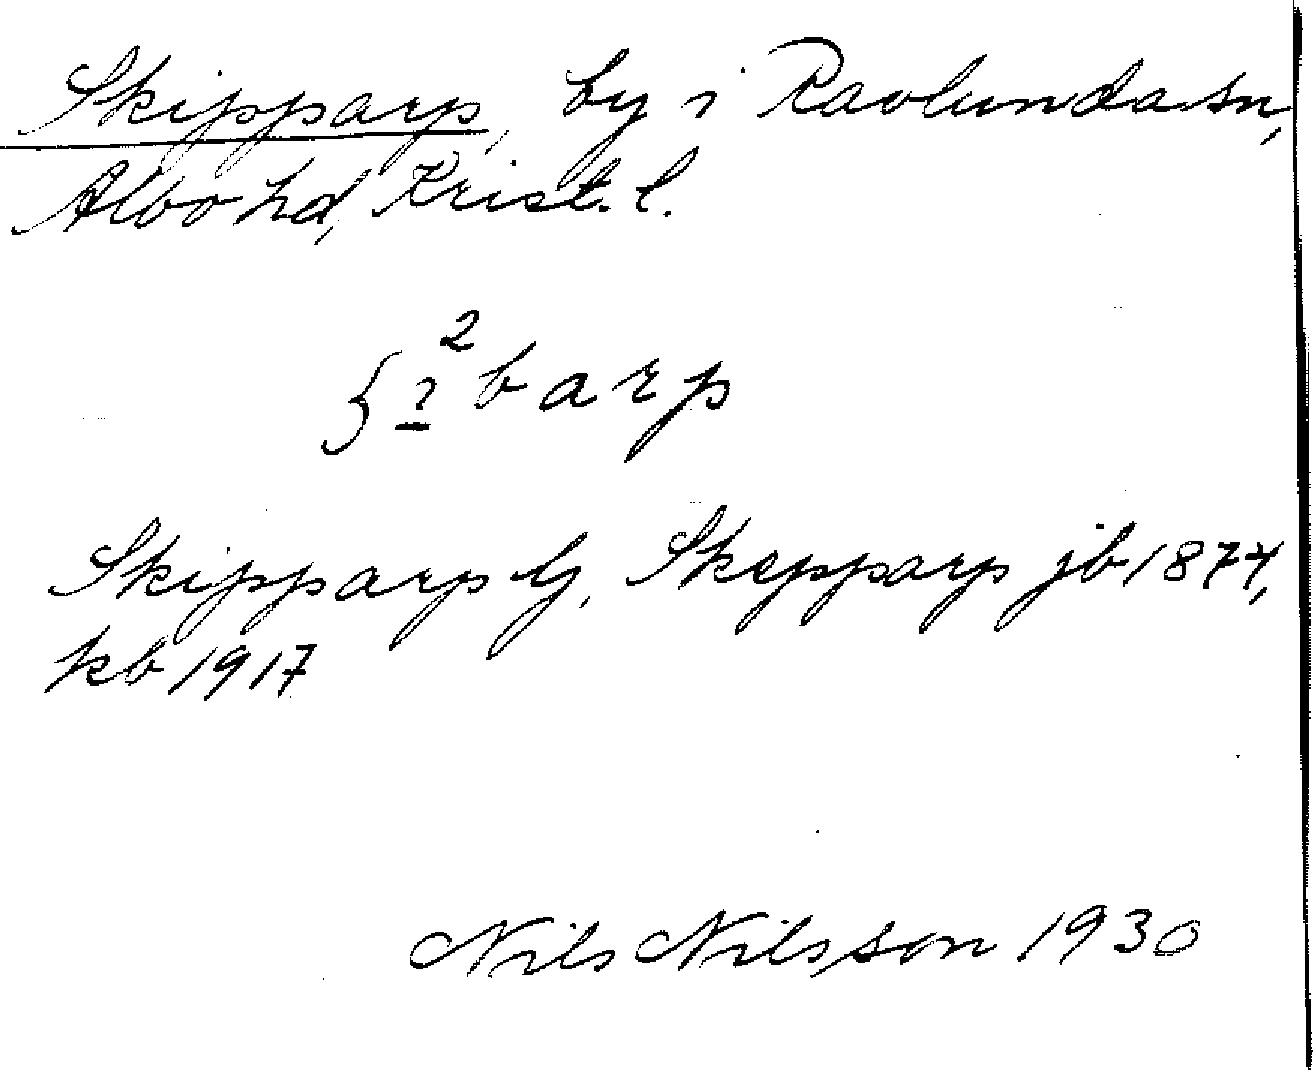 Skipparp, by i Ravlunda sn,
Albo hd, Krist. l.
barp
Skipparp G, Skepparp jb 1874,
kb 1917
Nils Nilsson 1930